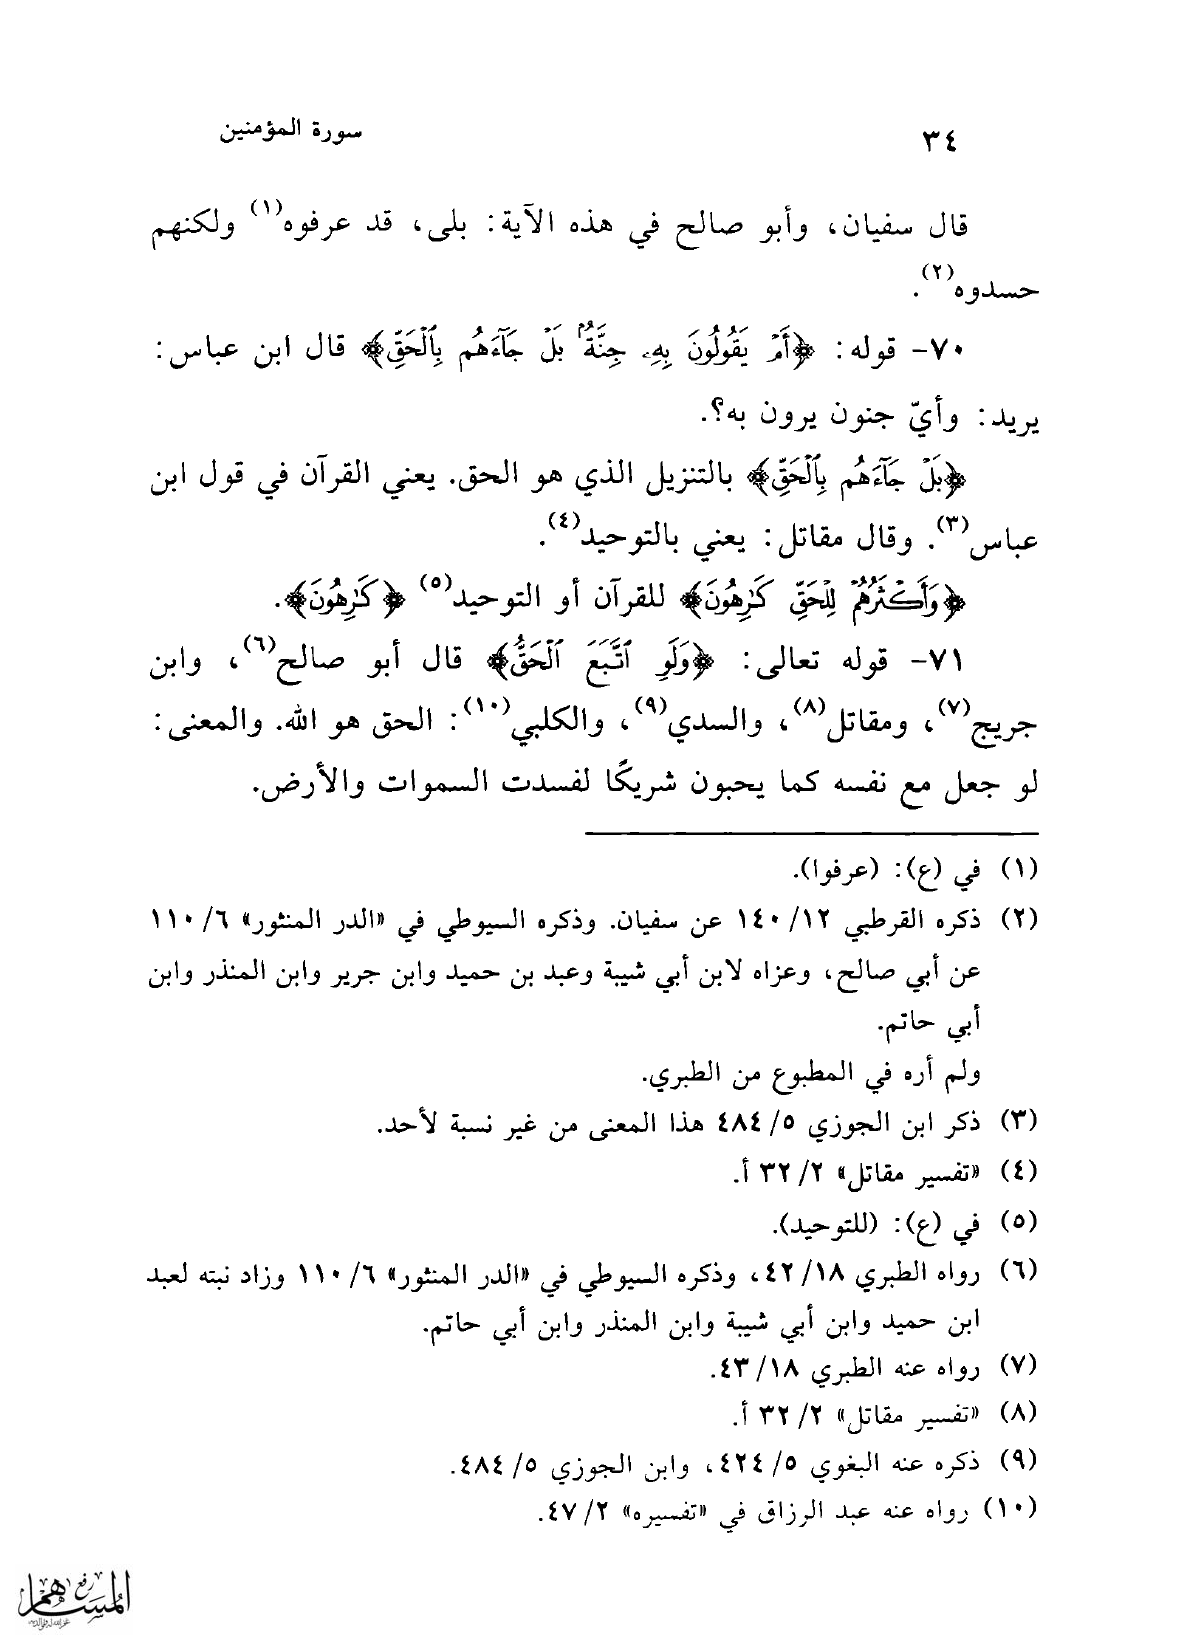 ٣٤ سورة المؤمنين
قال سفيان، وأبو صالح في هذه الآية: بلى، قد عرفوه(١) ولكنهم
حسدوه(٢).
٧٠- قوله: ﴿أَمْ يَقُولُونَ بِهِۦ جِنَّةٌۢ بَلْ جَآءَهُم بِٱلْحَقِّ﴾ قال ابن عباس:
يريد: وأيّ جنون يرون به؟.
﴿بَلْ جَآءَهُم بِٱلْحَقِّ﴾ بالتنزيل الذي هو الحق. يعني القرآن في قول ابن
عباس(٣). وقال مقاتل: يعني بالتوحيد(٤).
﴿وَأَكْثَرُهُمْ لِلْحَقِّ كَٰرِهُونَ﴾ للقرآن أو التوحيد(٥) ﴿كَٰرِهُونَ﴾.
٧١- قوله تعالى: ﴿وَلَوِ ٱتَّبَعَ ٱلْحَقُّ﴾ قال أبو صالح(٦)، وابن
جريج(٧)، ومقاتل(٨)، والسدي(٩)، والكلبي(١٠): الحق هو الله. والمعنى:
لو جعل مع نفسه كما يحبون شريكًا لفسدت السموات والأرض.
(١) في (ع): (عرفوا).
(٢) ذكره القرطبي ١٢/ ١٤٠ عن سفيان. وذكره السيوطي في «الدر المنثور» ٦/ ١١٠
عن أبي صالح، وعزاه لابن أبي شيبة وعبد بن حميد وابن جرير وابن المنذر وابن
أبي حاتم.
ولم أره في المطبوع من الطبري.
(٣) ذكر ابن الجوزي ٥/ ٤٨٤ هذا المعنى من غير نسبة لأحد.
(٤) «تفسير مقاتل» ٢/ ٣٢ أ.
(٥) في (ع): (للتوحيد).
(٦) رواه الطبري ١٨/ ٤٢، وذكره السيوطي في «الدر المنثور» ٦/ ١١٠ وزاد نبته لعبد
ابن حميد وابن أبي شيبة وابن المنذر وابن أبي حاتم.
(٧) رواه عنه الطبري ١٨/ ٤٣.
(٨) «تفسير مقاتل» ٢/ ٣٢ أ.
(٩) ذكره عنه البغوي ٥/ ٤٢٤، وابن الجوزي ٥/ ٤٨٤.
(١٠) رواه عنه عبد الرزاق في «تفسيره» ٢/ ٤٧.